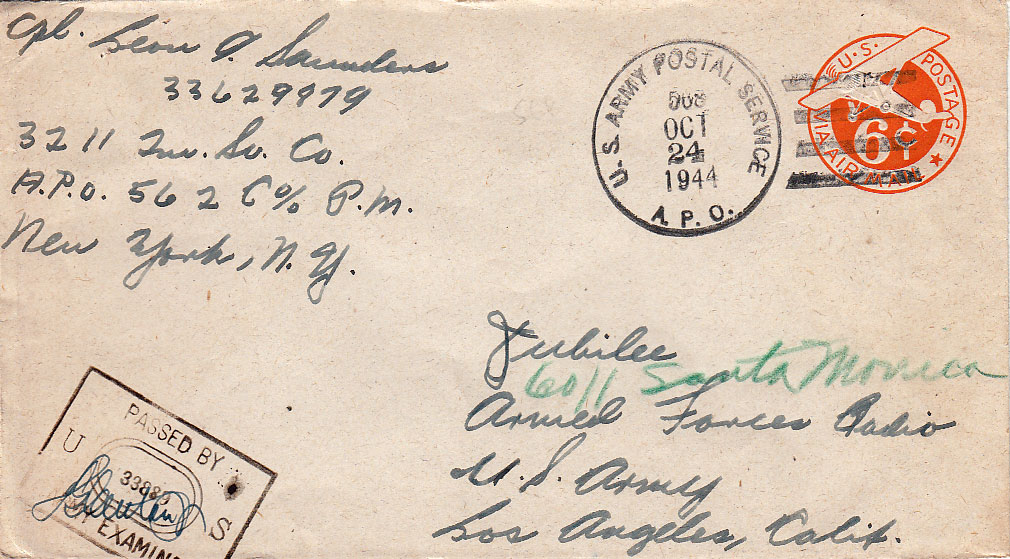 Cpl. Leon A. Saunders
33629979
3211 Qm. Sv. Co.
A.P.O. 562 C% P.M.
New York, N.Y.
U.S. ARMY POSTAL SERVICE
OCT
24
1944
A.P.O.
U.S. POSTAGE
6¢
VIA AIR MAIL
Jubilee
6011 Santa Monica
Armed Forces Radio
U.S. Army
Los Angeles, Calif.
PASSED BY
U S
ARMY EXAMINER